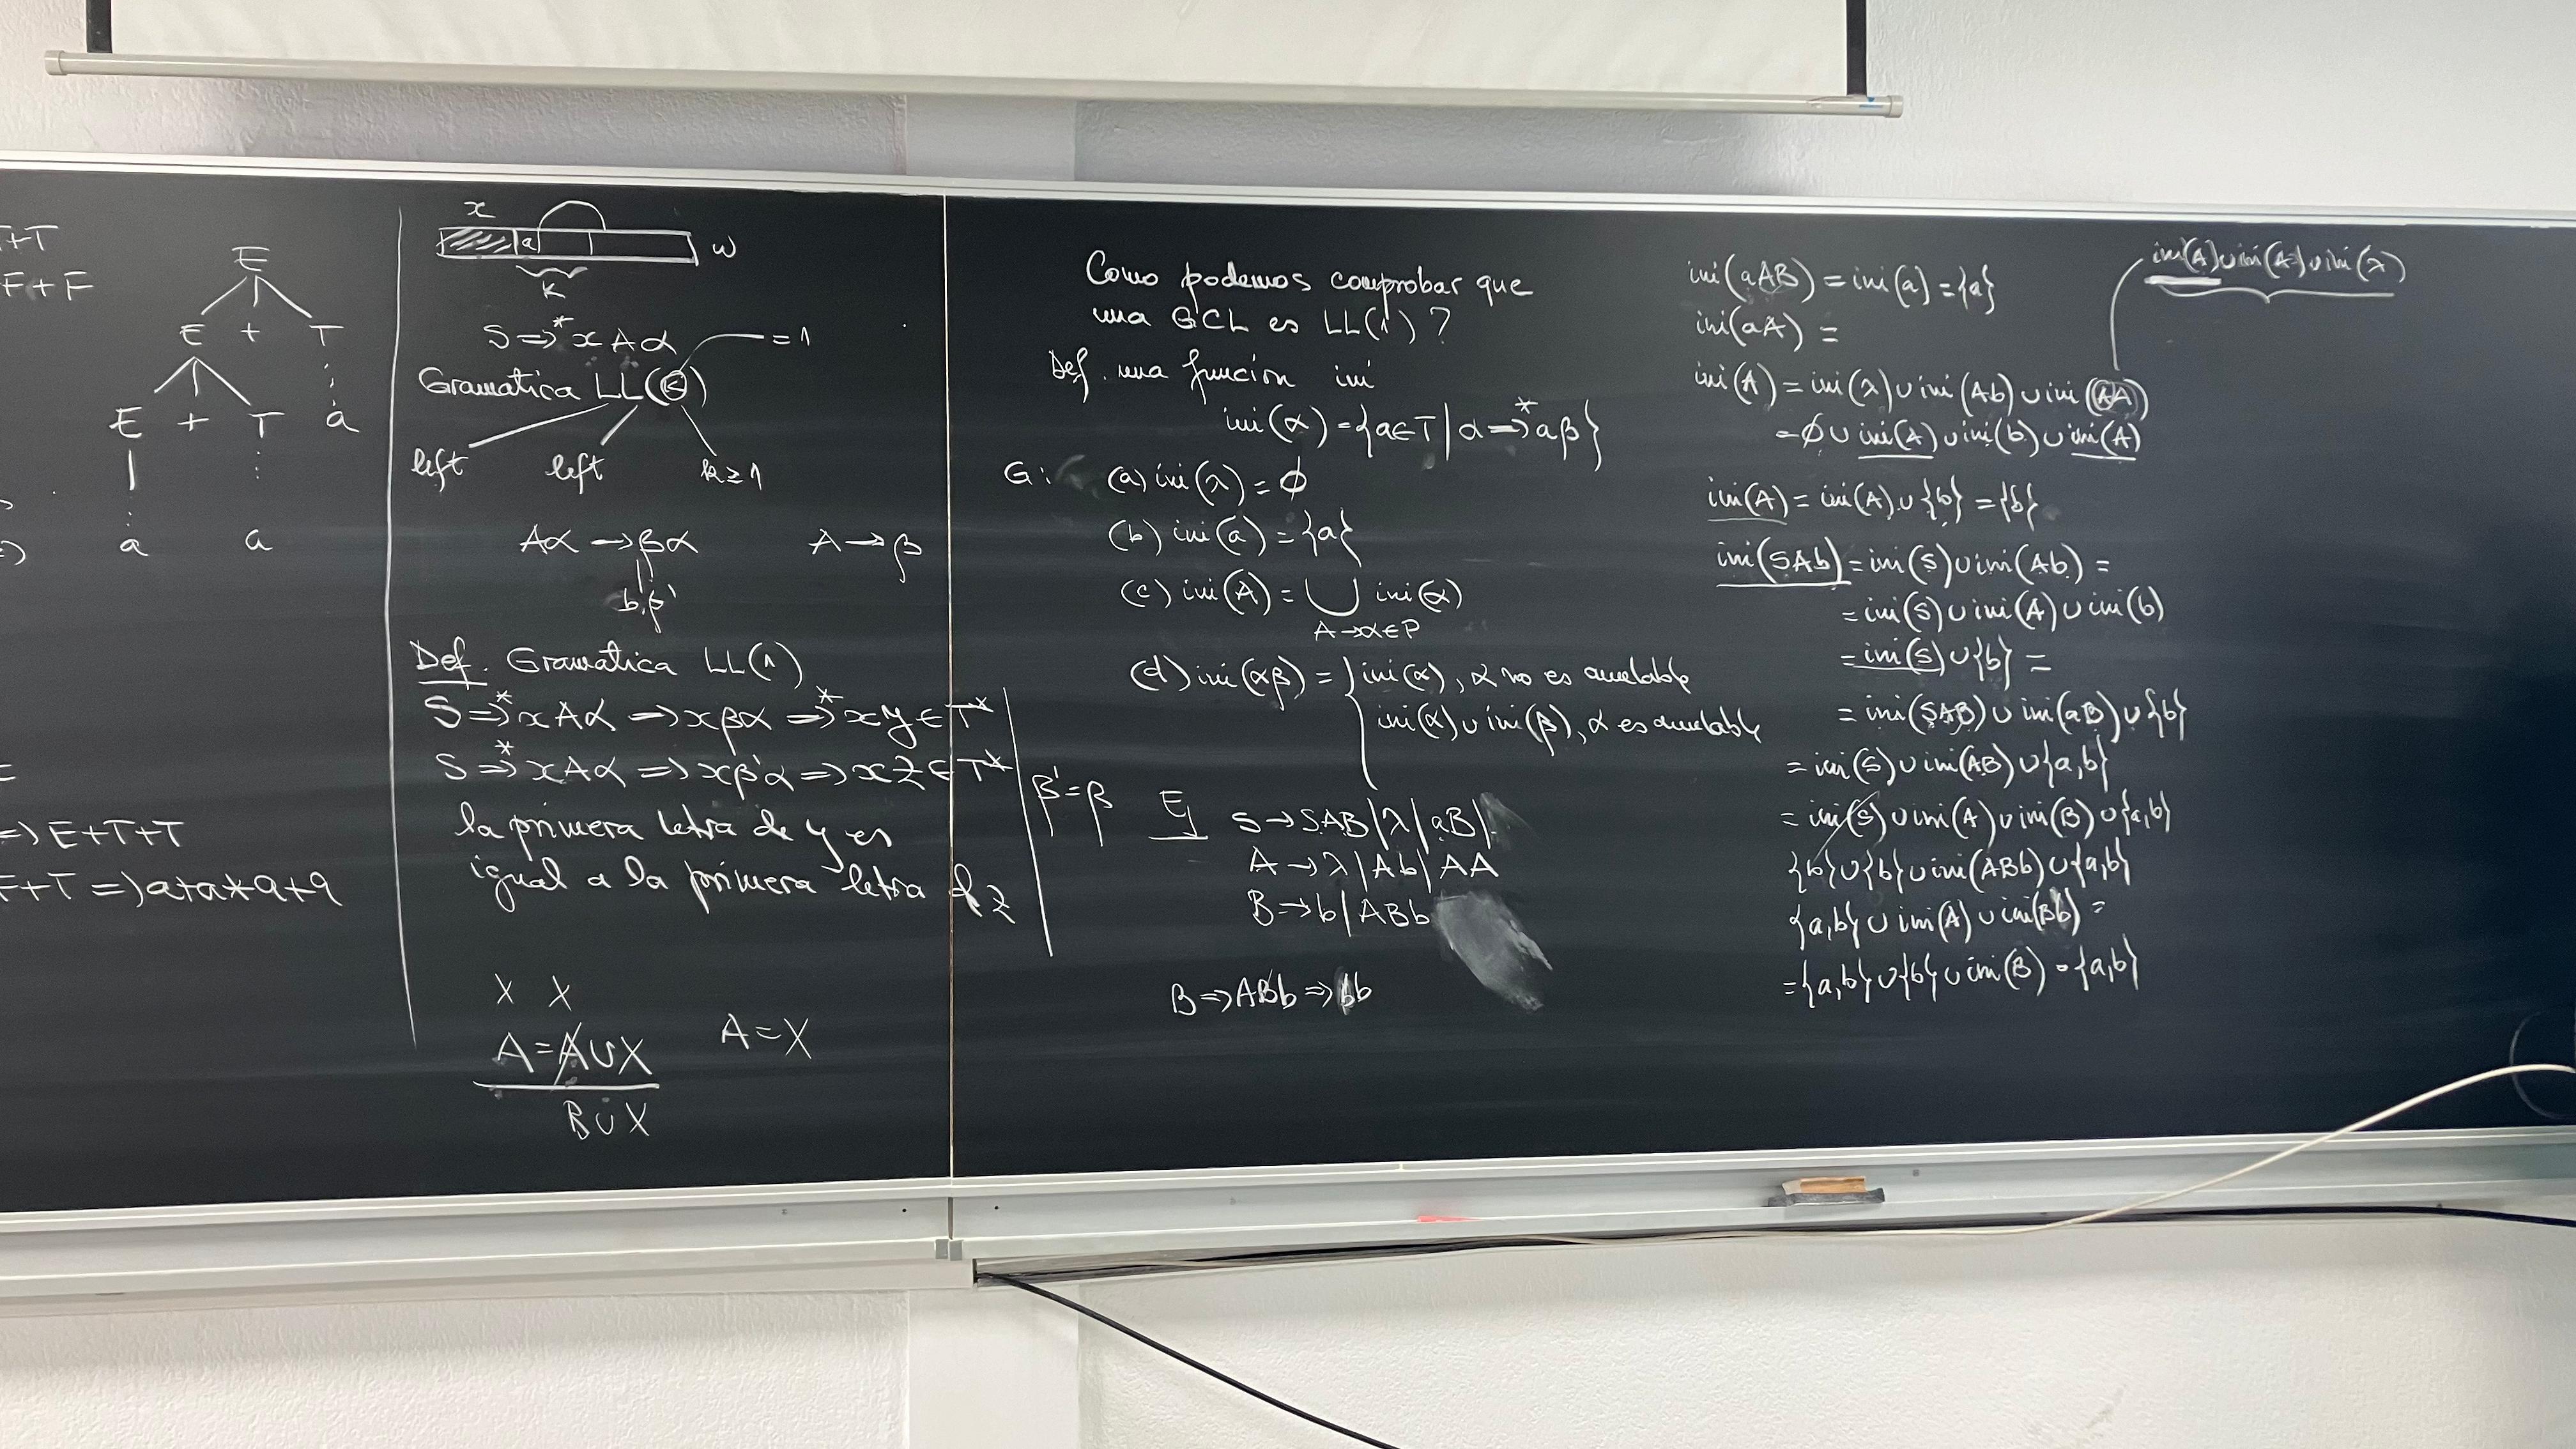 T+T
F+F
E
E + T
E + T a
a a
=> E+T+T
F+T => a+a*a+a
x
a
w
K
S =>* xAα
= 1
Gramatica LL(K)
left left k≥1
Aα → βα A → β
b,β'
Def. Gramatica LL(1)
S =>* xAα → xβα =>* xy ∈ T*
S =>* xAα => xβ'α => xz ∈ T*
β'=β
la primera letra de y es
igual a la primera letra d z
X X
A = A ∪ X A = X
B ∪ X
Como podemos comprobar que
una GCL es LL(1)?
Def. una funcion ini
ini(α) = {a∈T | α =>* aβ}
G: (a) ini(λ) = ∅
(b) ini(a) = {a}
(c) ini(A) = ∪ ini(α)
A→α∈P
(d) ini(αβ) = { ini(α), α no es anulable
ini(α) ∪ ini(β), α es anulable
Ej S → SAB | λ | aB |
A → λ | Ab | AA
B → b | ABb
B => ABb => bb
ini(aAB) = ini(a) = {a}
ini(aA) =
ini(A) ∪ ini(A) ∪ ini(λ)
ini(A) = ini(λ) ∪ ini(Ab) ∪ ini(AA)
= ∅ ∪ ini(A) ∪ ini(b) ∪ ini(A)
ini(A) = ini(A) ∪ {b} = {b}
ini(SAb) = ini(S) ∪ ini(Ab) =
= ini(S) ∪ ini(A) ∪ ini(b)
= ini(S) ∪ {b} =
= ini(SAB) ∪ ini(aB) ∪ {b}
= ini(S) ∪ ini(AB) ∪ {a,b}
= ini(S) ∪ ini(A) ∪ ini(B) ∪ {a,b}
{b} ∪ {b} ∪ ini(ABb) ∪ {a,b}
{a,b} ∪ ini(A) ∪ ini(Bb) =
= {a,b} ∪ {b} ∪ ini(B) = {a,b}